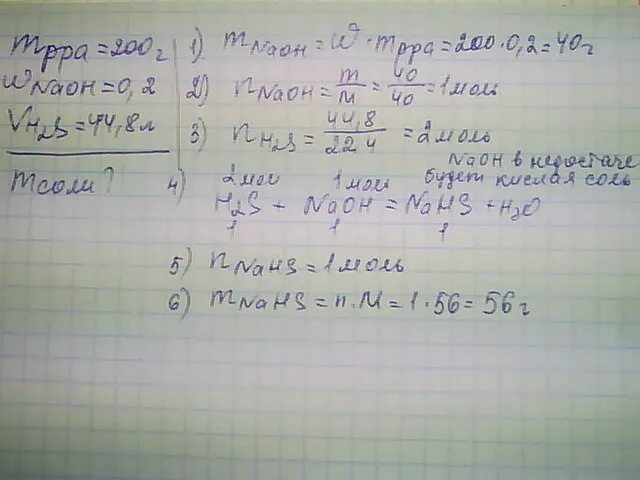 mрра = 200г
WNaOH = 0,2
VH₂S = 44,8л
mсоли?
1) mNaOH = W · mрра = 200 · 0,2 = 40г
2) nNaOH = m/M = 40/40 = 1моль
3) nH₂S = 44,8/22,4 = 2моль
NaOH в недостаче
будет кислая соль
4) 2моль 1моль
H₂S + NaOH = NaHS + H₂O
1 1 1
5) nNaHS = 1моль
6) mNaHS = n · M = 1 · 56 = 56г